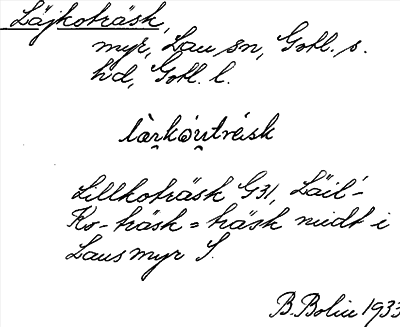 Läjkoträsk,
myr, Lau sn, Gotl. s.
hd, Gotl. l.
Lillkoträsk G31, Läil-
Ko-träsk = träsk midt i
Lausmyr S.
B. Bolin 1933